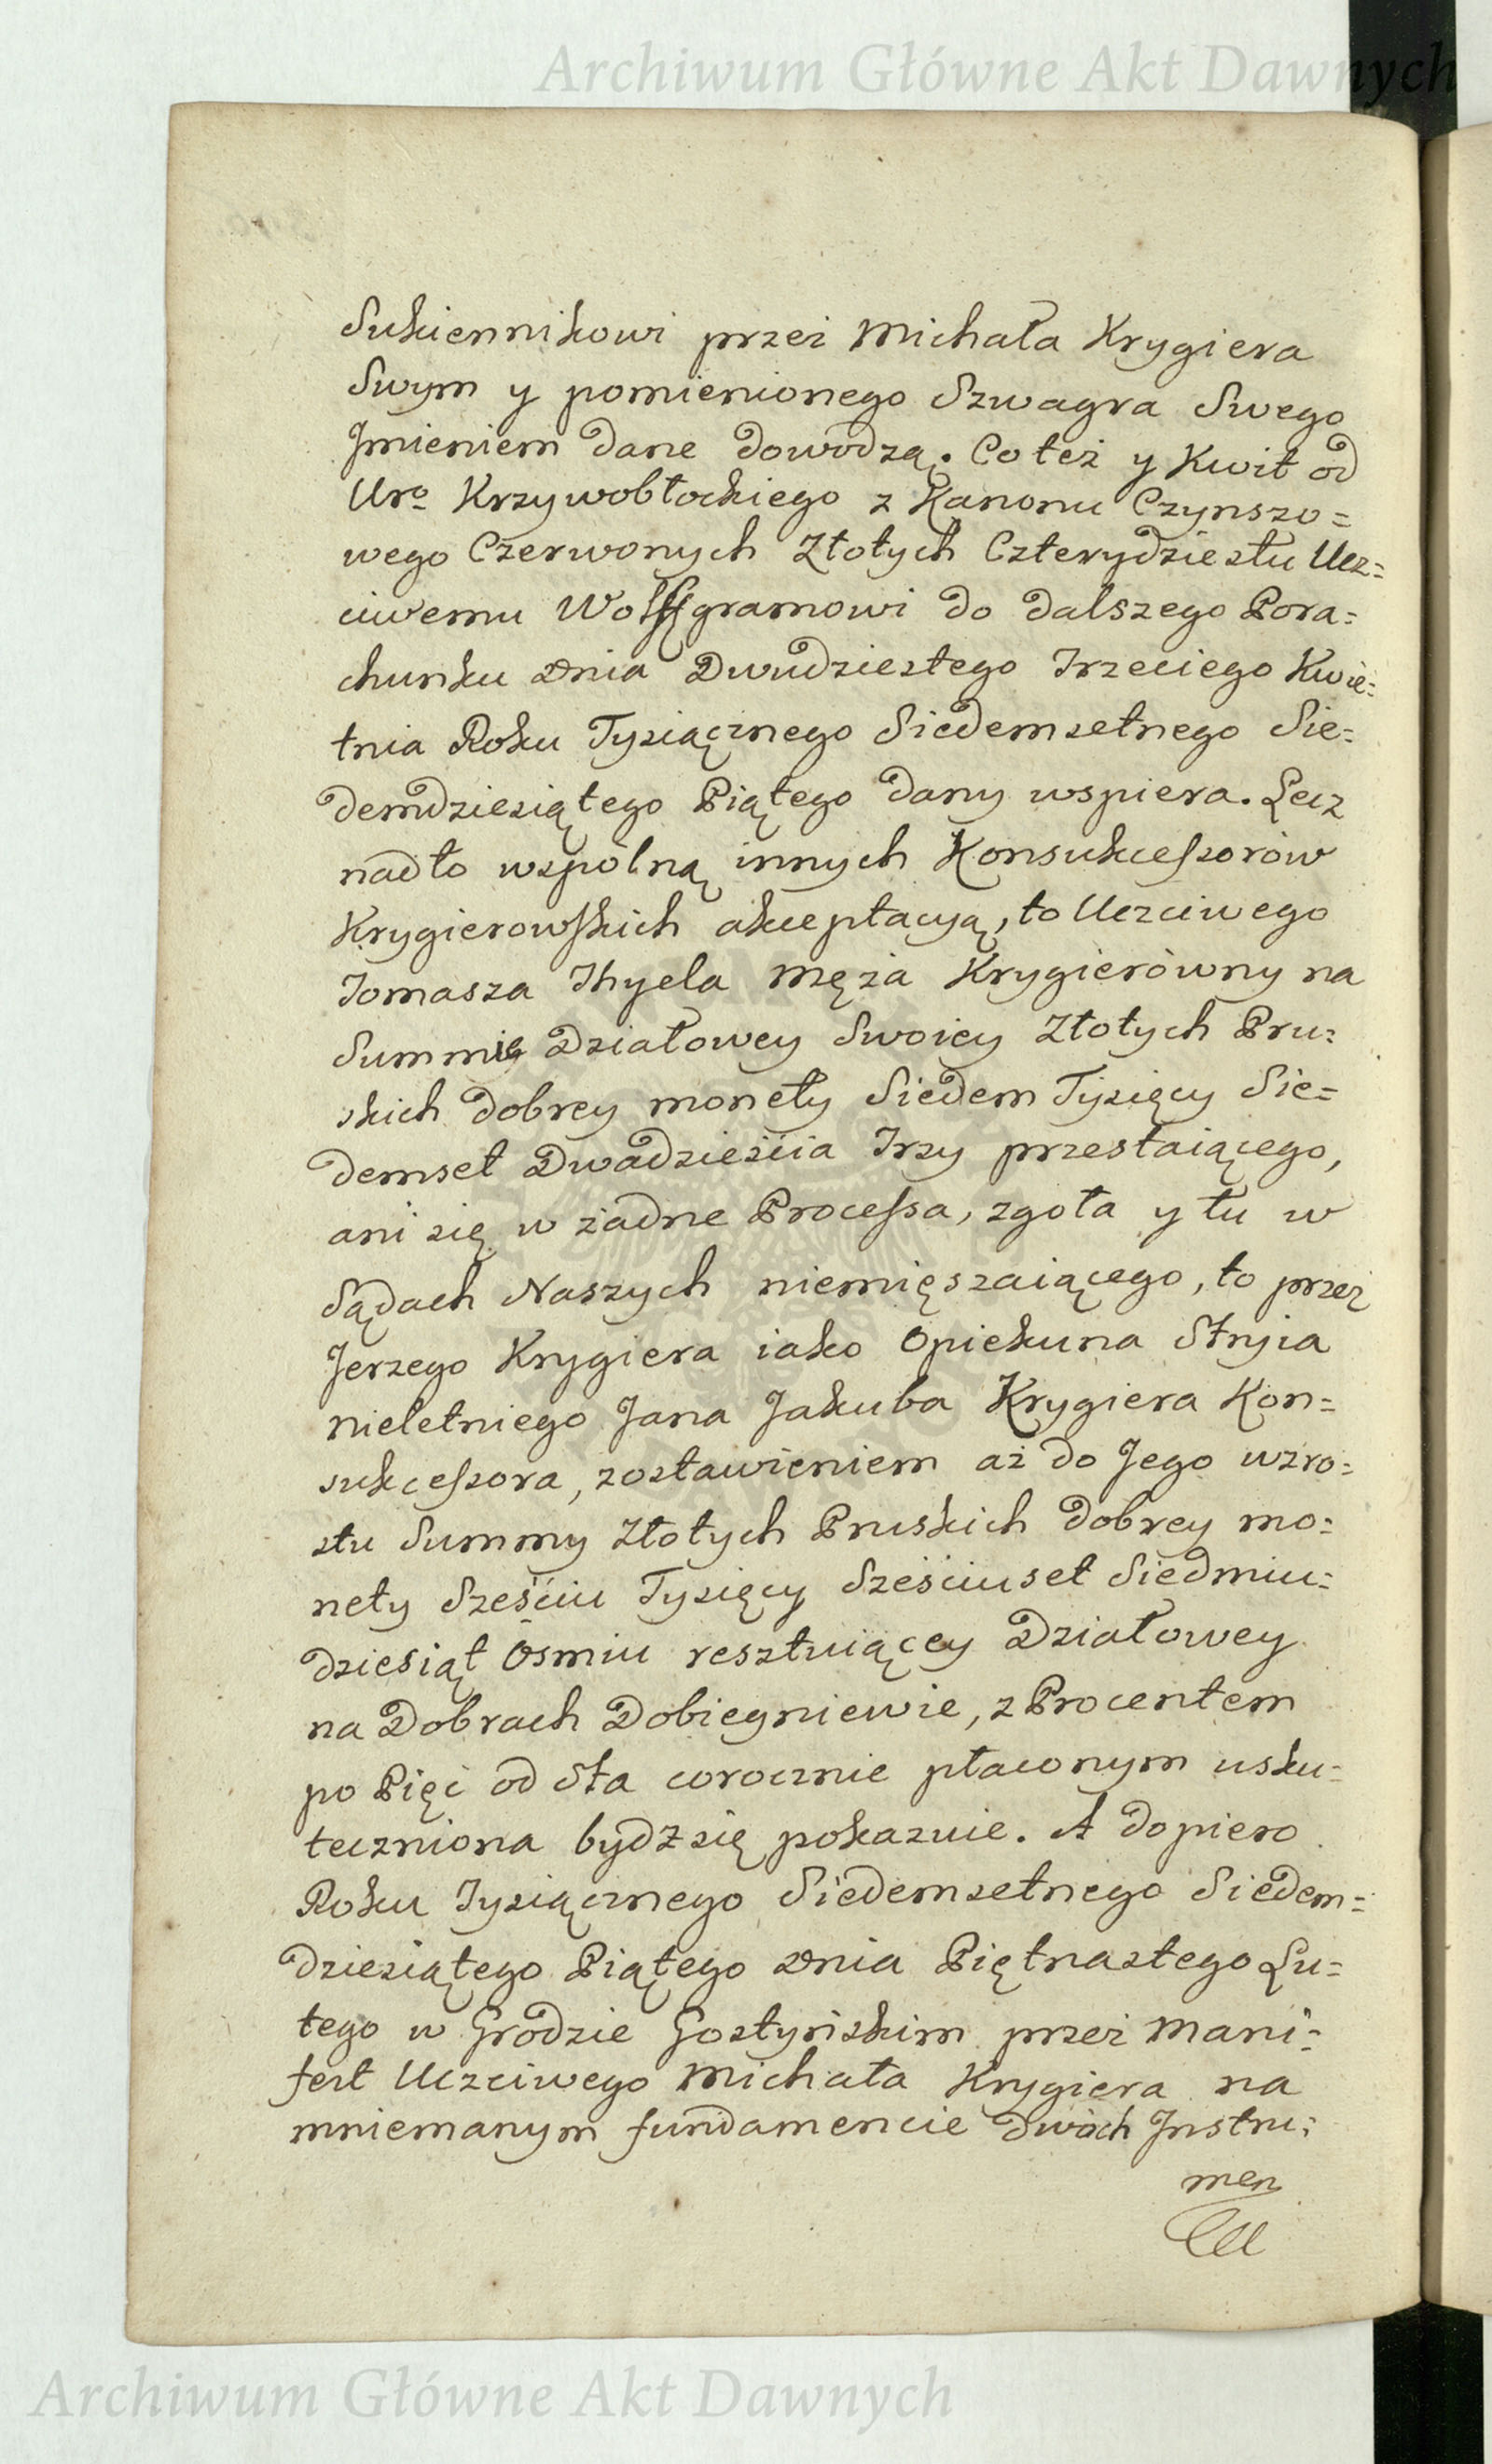 Archiwum Główne Akt Dawnych
Sukiennikowi przez Michała Krygiera
Swym y pomienionego Szwagra Swego
Jmieniem dane dowodzą. Co też y Kwit od
Uro Krzywobłockiego z Kanonu Czynszo=
wego Czerwonych Złotych Czterydziestu Ucz=
ciwemu Wolfgramowi do dalszego Pora=
chunku dnia Dwudziestego Trzeciego Kwie=
tnia Roku Tysiącznego Siedemsetnego Sie=
demdziesiątego Piątego dany wspiera. Lecz
nadto wspólną innych Konsukcessorów
Krygierowskich akceptacyą, to Uczciwego
Tomasza Thyela Męża Krygierówny na
Summie Działowey Swoiey Złotych Pru=
skich dobrey monety Siedem Tysięcy Sie=
demset Dwadzieścia Trzy przestaiącego,
ani się w żadne Processa, zgoła y tu w
Sądach Naszych niemięszaiącego, to przez
Jerzego Krygiera iako Opiekuna Stryia
nieletniego Jana Jakuba Krygiera Kon=
sukcessora, zostawieniem aż do Jego wzro=
stu Summy Złotych Pruskich dobrey mo=
nety Sześciu Tysięcy Sześciuset Siedmiu=
dziesiąt Ośmiu resztuiącey Działowey
na Dobrach Dobiegniewie, z Procentem
po Pięć od Sta corocznie płaconym usku=
teczniona bydź się pokazuie. A dopiero
Roku Tysiącznego Siedemsetnego Siedem=
dziesiątego Piątego dnia Piętnastego Lu=
tego w Grodzie Gostyńskim przez Mani=
fest Uczciwego Michała Krygiera na
mniemanym fundamencie dwóch Jnstru=
men
Archiwum Główne Akt Dawnych